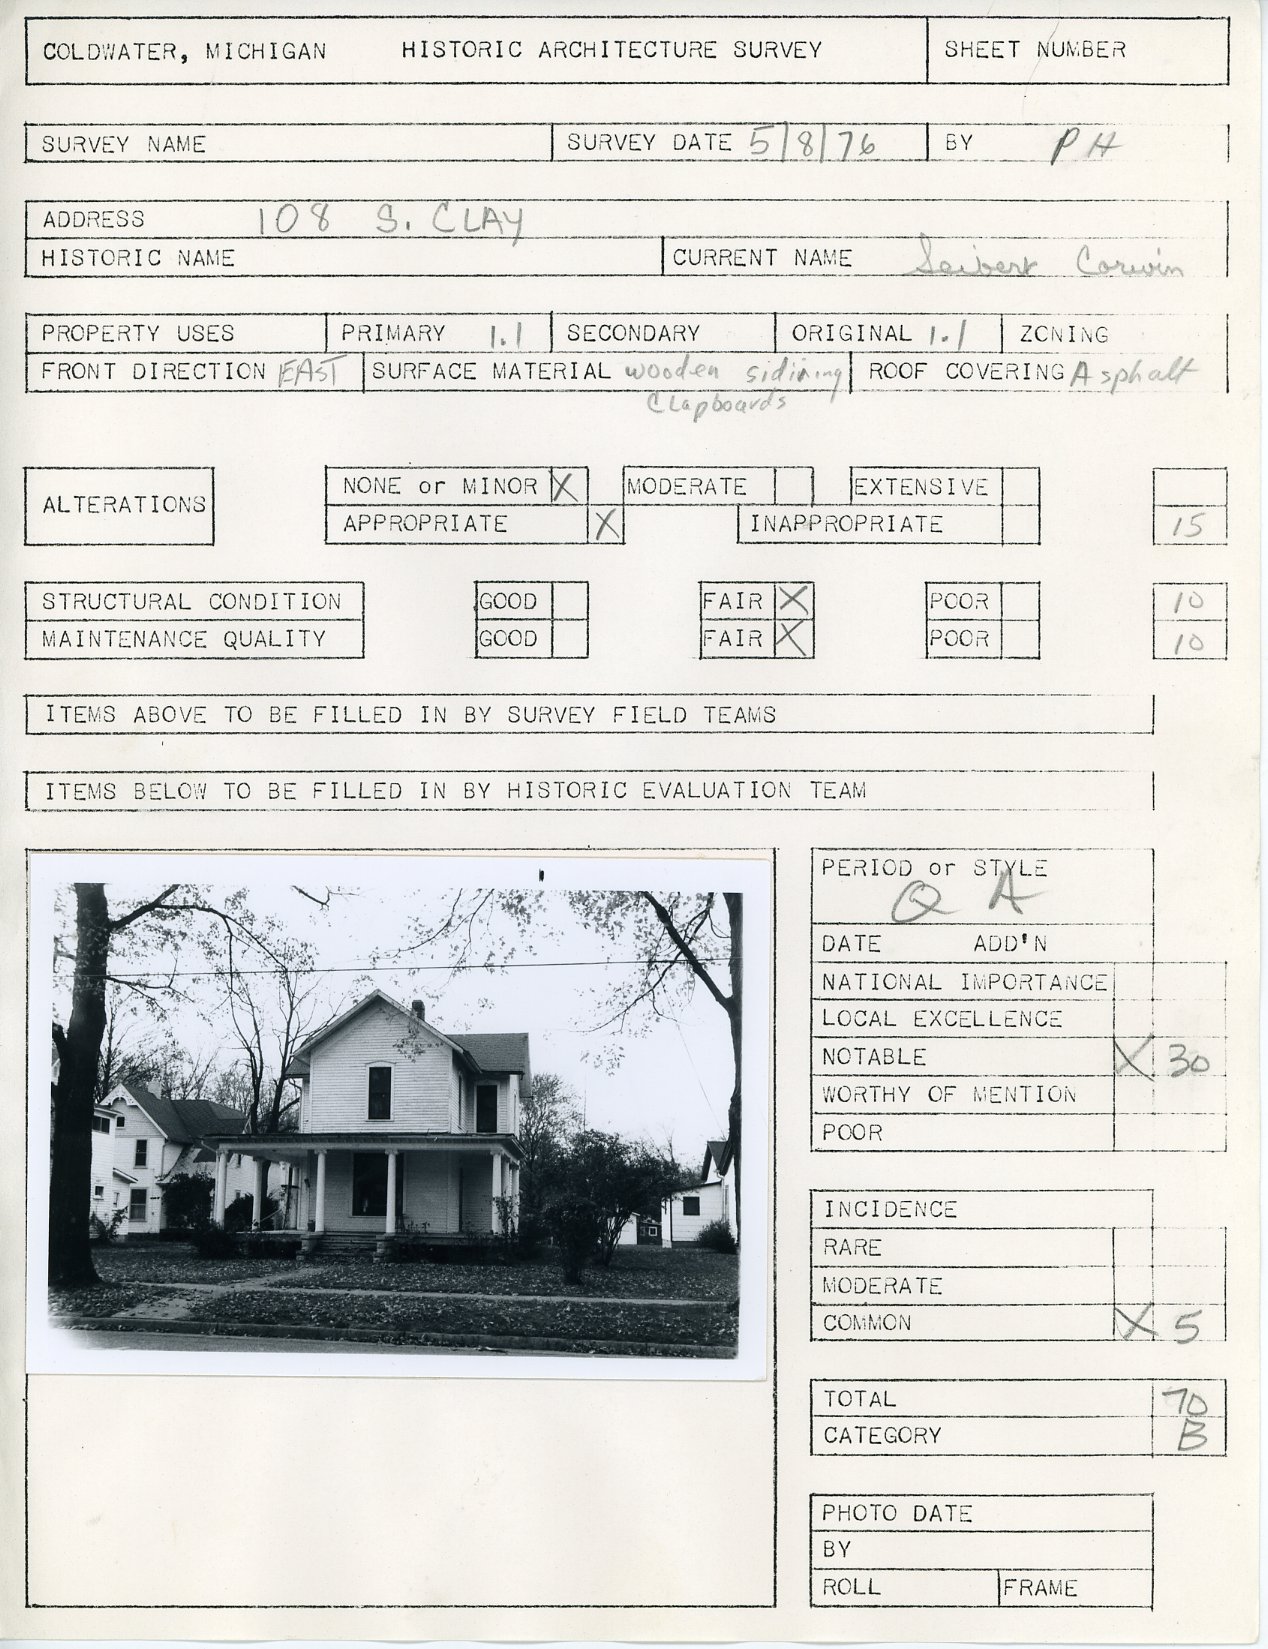 COLDWATER, MICHIGAN HISTORIC ARCHITECTURE SURVEY SHEET NUMBER
SURVEY NAME SURVEY DATE 5/8/76 BY PH
ADDRESS 108 S. CLAY
HISTORIC NAME CURRENT NAME Seibert Corwin
PROPERTY USES PRIMARY 1.1 SECONDARY ORIGINAL 1.1 ZONING
FRONT DIRECTION EAST SURFACE MATERIAL wooden sidining ROOF COVERING Asphalt
Clapboards
ALTERATIONS NONE or MINOR X MODERATE EXTENSIVE
APPROPRIATE X INAPPROPRIATE 15
STRUCTURAL CONDITION GOOD FAIR X POOR 10
MAINTENANCE QUALITY GOOD FAIR X POOR 10
ITEMS ABOVE TO BE FILLED IN BY SURVEY FIELD TEAMS
ITEMS BELOW TO BE FILLED IN BY HISTORIC EVALUATION TEAM
PERIOD or STYLE
Q A
DATE ADD'N
NATIONAL IMPORTANCE
LOCAL EXCELLENCE
NOTABLE X 30
WORTHY OF MENTION
POOR
INCIDENCE
RARE
MODERATE
COMMON X 5
TOTAL 70
CATEGORY B
PHOTO DATE
BY
ROLL FRAME